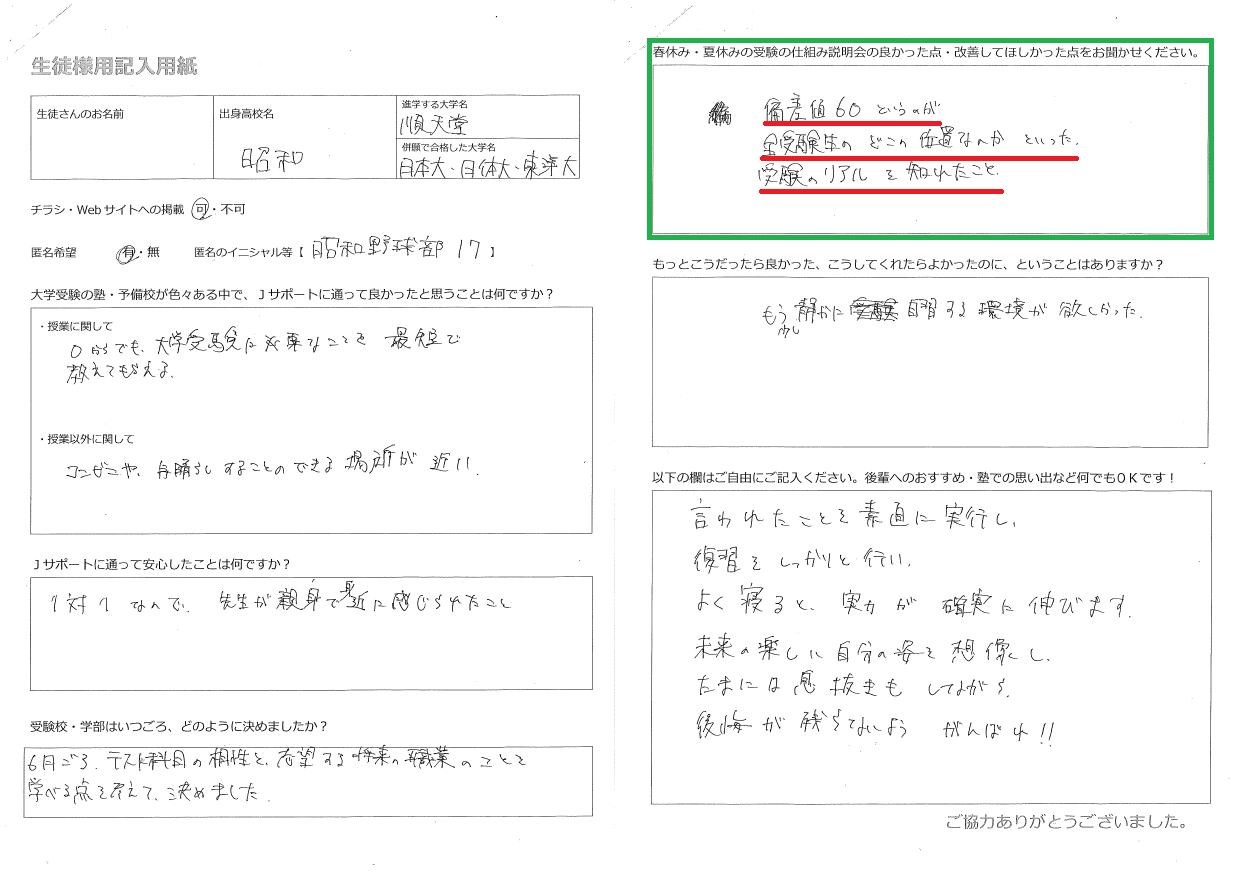 生徒様用記入用紙
生徒さんのお名前
出身高校名
昭和
進学する大学名
順天堂
併願で合格した大学名
日本大、日体大、東洋大
チラシ・Webサイトへの掲載 可・不可
匿名希望 有・無 匿名のイニシャル等【 昭和野球部 17 】
大学受験の塾・予備校が色々ある中で、Jサポートに通って良かったと思うことは何ですか？
・授業に関して
0からでも、大学受験に必要なことを 最短で
教えてもらえる。
・授業以外に関して
コンビニや、気晴らしすることのできる場所が近い.
Jサポートに通って安心したことは何ですか？
1対1なんで、先生が親身で身近に感じられたこと
受験校・学部はいつごろ、どのように決めましたか？
6月ごろ、テスト科目の相性と、志望する将来の職業のことを
学べる点を考えて、決めました.
春休み・夏休みの受験の仕組み説明会の良かった点・改善してほしかった点をお聞かせください。
偏差値60というのが
全受験生の どこの位置なのか といった、
受験のリアルを知れたこと.
もっとこうだったら良かった、こうしてくれたらよかったのに、ということはありますか？
もう少し静かに自習する環境が欲しかった.
以下の欄はご自由にご記入ください。後輩へのおすすめ・塾での思い出など何でもOKです！
言われたことを素直に実行し、
復習をしっかりと行い、
よく寝ると、実力が確実に伸びます.
未来の楽しい自分の姿を想像し、
たまには息抜きもしながら、
後悔が残らないよう がんばれ!!
ご協力ありがとうございました。